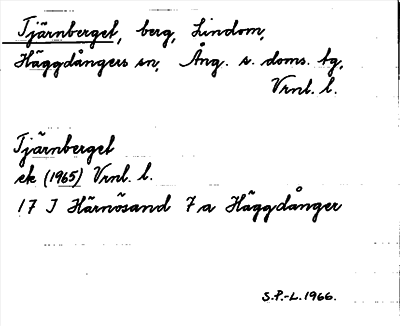 Tjärnberget, berg, Lindom,
Häggdångers sn, Ång. s. doms. tg,
Vrnl. l.
Tjärnberget
ek (1965) Vrnl. l.
17 I Härnösand 7 a Häggdånger
S.P.-L. 1966.